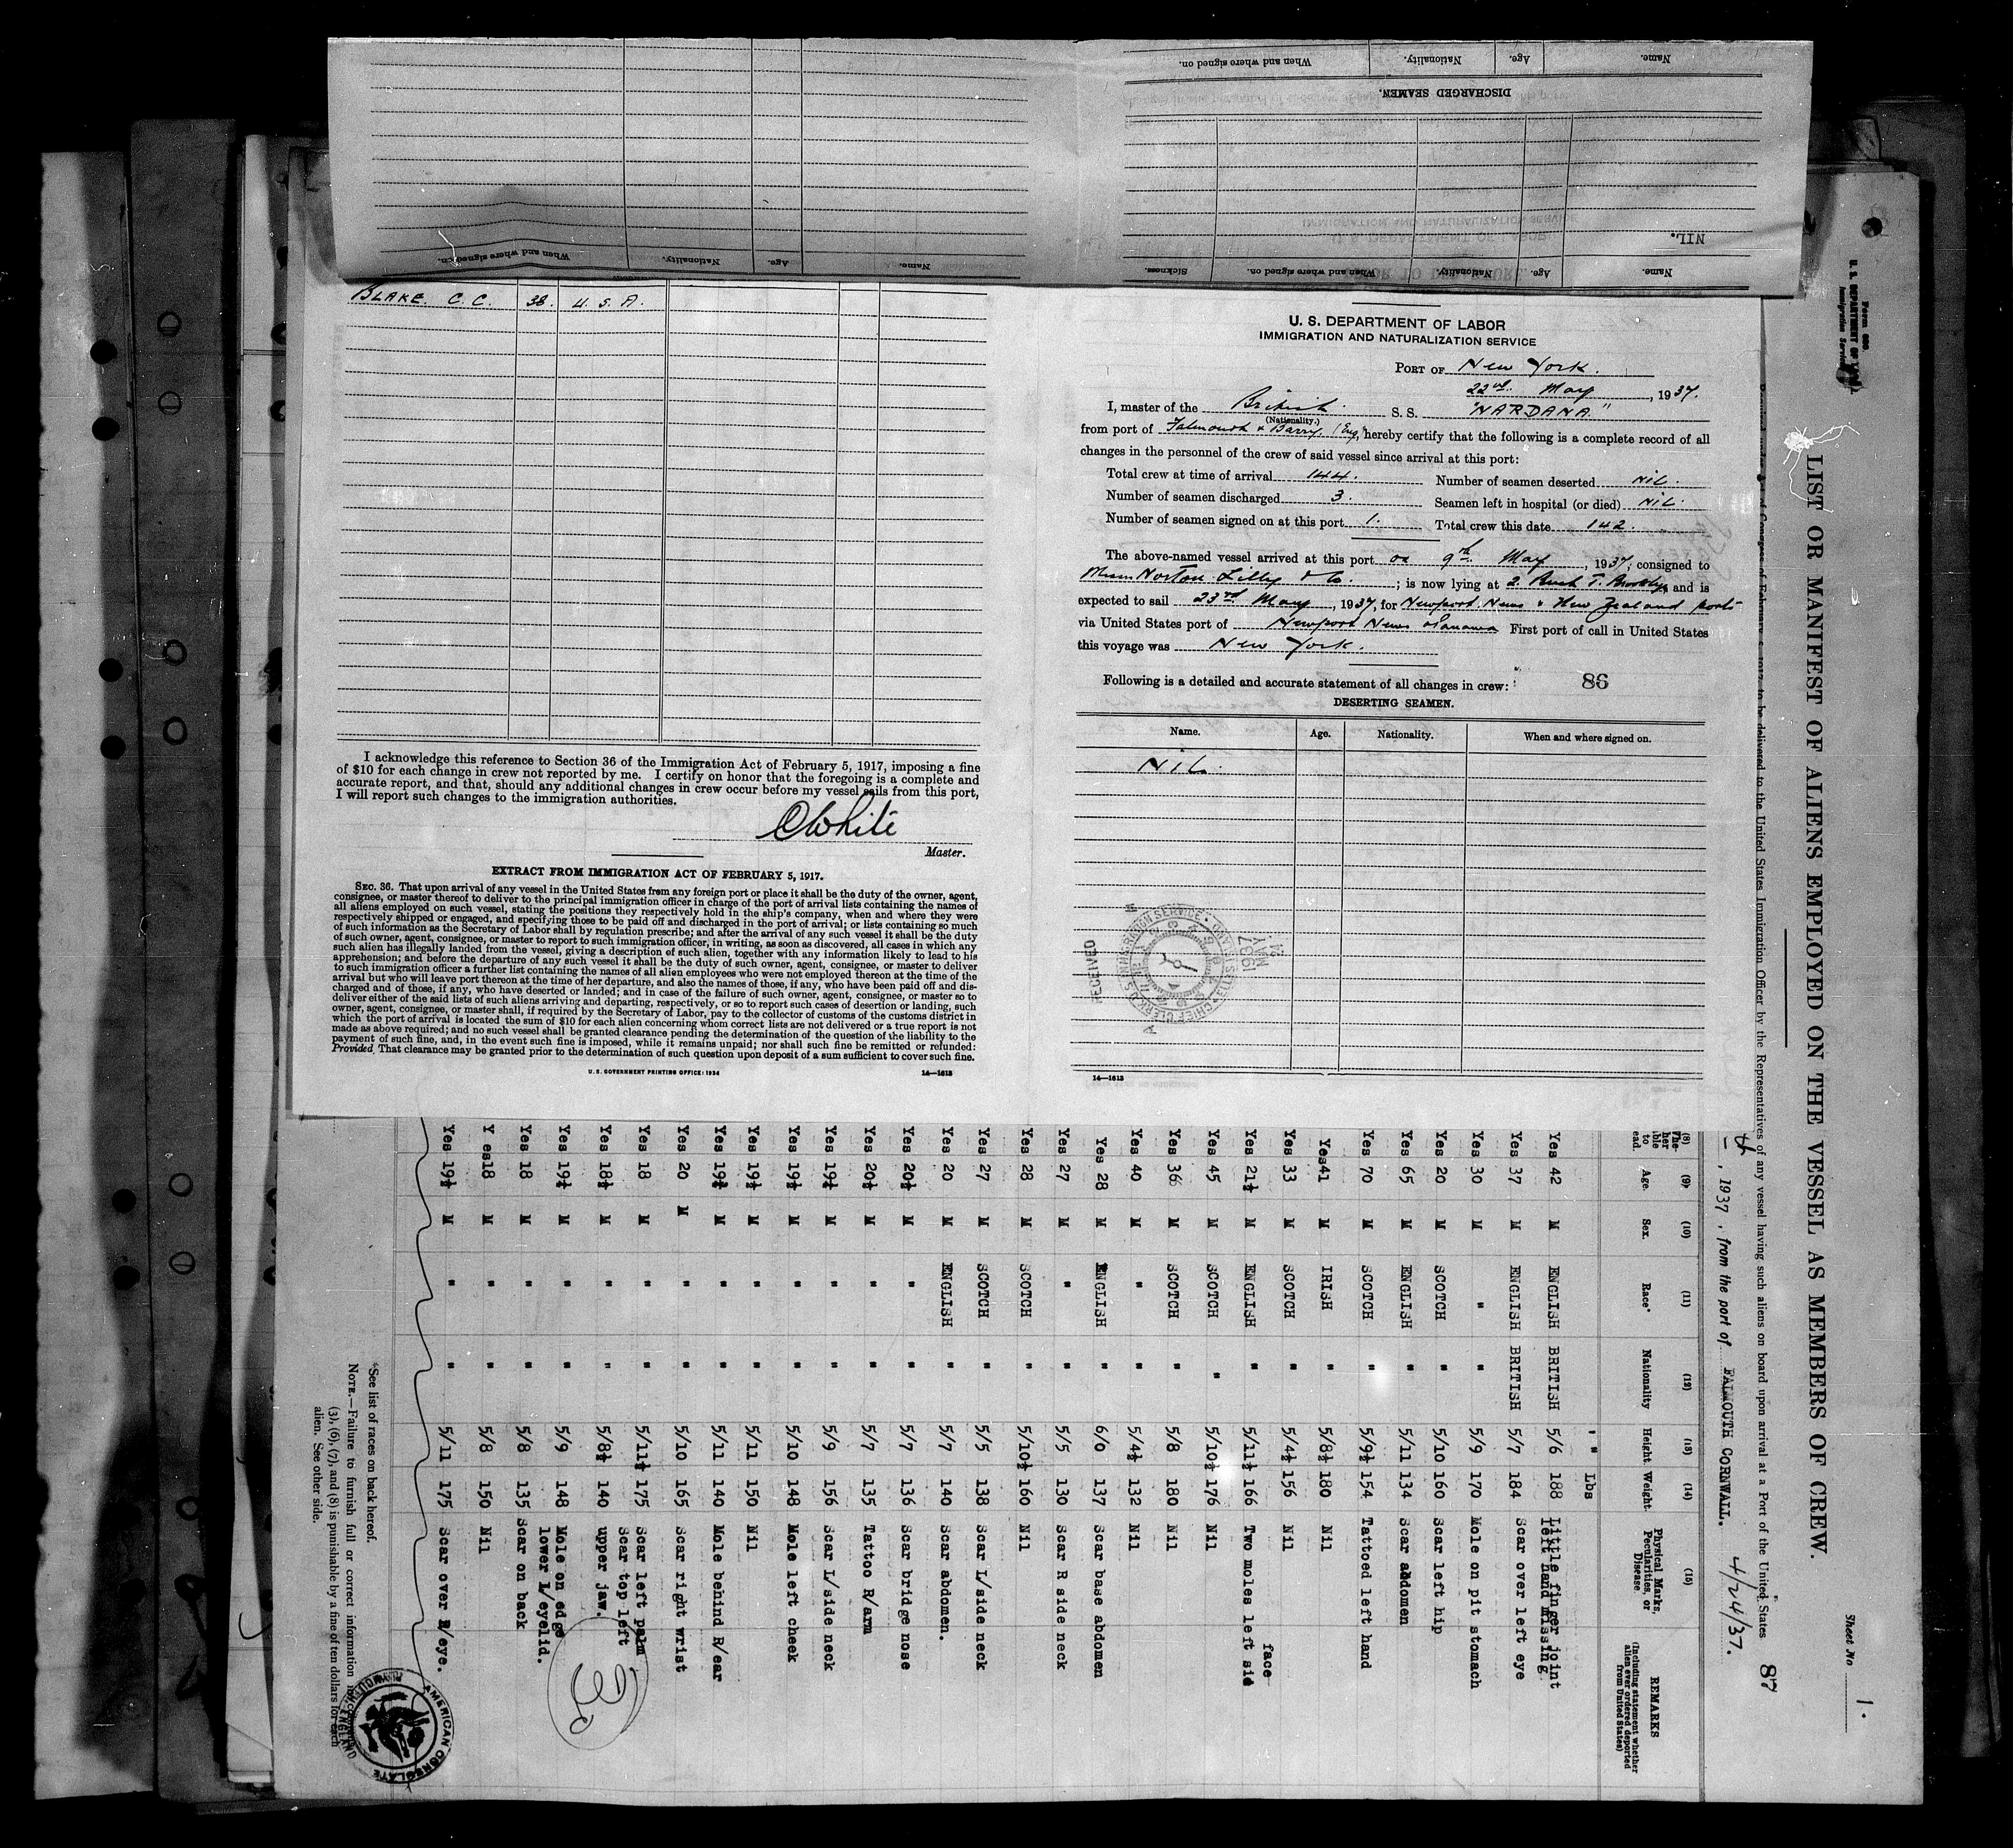 Name. Age. Nationality. When and where signed on.
DISCHARGED SEAMEN.
NIL.
Name. Age. Nationality. When and where signed on. Sickness.
Name. Age. Nationality. When and where signed on.
BLAKE. C. C. 38. U. S. A.
I acknowledge this reference to Section 36 of the Immigration Act of February 5, 1917, imposing a fine
of $10 for each change in crew not reported by me. I certify on honor that the foregoing is a complete and
accurate report, and that, should any additional changes in crew occur before my vessel sails from this port,
I will report such changes to the immigration authorities.
CWhite
Master.
EXTRACT FROM IMMIGRATION ACT OF FEBRUARY 5, 1917.
SEC. 36. That upon arrival of any vessel in the United States from any foreign port or place it shall be the duty of the owner, agent,
consignee, or master thereof to deliver to the principal immigration officer in charge of the port of arrival lists containing the names of
all aliens employed on such vessel, stating the positions they respectively hold in the ship's company, when and where they were
respectively shipped or engaged, and specifying those to be paid off and discharged in the port of arrival; or lists containing so much
of such information as the Secretary of Labor shall by regulation prescribe; and after the arrival of any such vessel it shall be the duty
of such owner, agent, consignee, or master to report to such immigration officer, in writing, as soon as discovered, all cases in which any
such alien has illegally landed from the vessel, giving a description of such alien, together with any information likely to lead to his
apprehension; and before the departure of any such vessel it shall be the duty of such owner, agent, consignee, or master to deliver
to such immigration officer a further list containing the names of all alien employees who were not employed thereon at the time of the
arrival but who will leave port thereon at the time of her departure, and also the names of those, if any, who have been paid off and dis-
charged and of those, if any, who have deserted or landed; and in case of the failure of such owner, agent, consignee, or master so to
deliver either of the said lists of such aliens arriving and departing, respectively, or so to report such cases of desertion or landing, such
owner, agent, consignee, or master shall, if required by the Secretary of Labor, pay to the collector of customs of the customs district in
which the port of arrival is located the sum of $10 for each alien concerning whom correct lists are not delivered or a true report is not
made as above required; and no such vessel shall be granted clearance pending the determination of the question of the liability to the
payment of such fine, and, in the event such fine is imposed, while it remains unpaid; nor shall such fine be remitted or refunded:
Provided, That clearance may be granted prior to the determination of such question upon deposit of a sum sufficient to cover such fine.
U. S. GOVERNMENT PRINTING OFFICE: 1934 14—1613
U. S. DEPARTMENT OF LABOR
IMMIGRATION AND NATURALIZATION SERVICE
PORT OF New York.
22nd. May, 1937.
I, master of the British. S. S. "NARDANA."
(Nationality.)
from port of Falmouth & Barry (Eng) hereby certify that the following is a complete record of all
changes in the personnel of the crew of said vessel since arrival at this port:
Total crew at time of arrival 144. Number of seamen deserted NIL.
Number of seamen discharged 3. Seamen left in hospital (or died) NIL.
Number of seamen signed on at this port 1. Total crew this date 142.
The above-named vessel arrived at this port on 9th May, 1937; consigned to
Norton Lilly & Co.; is now lying at 2. Bush T. Brooklyn and is
expected to sail 23rd May, 1937, for Newport News & New Zealand ports
via United States port of Newport News Panama First port of call in United States
this voyage was New York.
Following is a detailed and accurate statement of all changes in crew: 86
DESERTING SEAMEN.
Name. Age. Nationality. When and where signed on.
NIL.
RECEIVED
14—1613
U. S. DEPARTMENT OF LABOR
Immigration Service
Sheet No 1.
LIST OR MANIFEST OF ALIENS EMPLOYED ON THE VESSEL AS MEMBERS OF CREW.
to be delivered to the United States Immigration Officer by the Representatives of any vessel having such aliens on board upon arrival at a Port of the United States 87
, 1937, from the port of FALMOUTH CORNWALL. 4/24/37.
(8) (9) (10) (11) (12) (13) (14) (15) REMARKS
Age. Sex. Race* Nationality Height Weight Physical Marks, Pecularities, or Disease (Including statement whether alien ever ordered deported from United States)
' " Lbs
Yes 42 M ENGLISH BRITISH 5/6 188 Little finger joint left hand missing
Yes 37 M ENGLISH BRITISH 5/7 184 Scar over left eye
Yes 30 M " " 5/9 170 Mole on pit stomach
Yes 20 M SCOTCH " 5/10 160 Scar left hip
Yes 65 M ENGLISH " 5/11 134 Scar abdomen
Yes 70 M SCOTCH " 5/9½ 154 Tattoed left hand
Yes41 M IRISH " 5/8½ 180 Nil
Yes 33 M SCOTCH " 5/4½ 156 Nil
Yes 21½ M ENGLISH " 5/11½ 166 Two moles left sid face
Yes 45 M SCOTCH " 5/10½ 176 Nil
Yes 36 M SCOTCH " 5/8 180 Nil
Yes 40 M " " 5/4½ 132 Nil
Yes 28 M ENGLISH " 6/0 137 Scar base abdomen
Yes 27 M " " 5/5 130 Scar R side neck
Yes 28 M SCOTCH " 5/10½ 160 Nil
Yes 27 M SCOTCH " 5/5 138 Scar L/side neck
Yes 20 M ENGLISH " 5/7 140 Scar abdomen.
Yes 20½ M " " 5/7 136 Scar bridge nose
Yes 20½ M " " 5/7 135 Tattoo R/arm
Yes 19½ M " " 5/9 156 Scar L/side neck
Yes 19½ M " " 5/10 148 Mole left cheek
Yes 19½ M " " 5/11 150 Nil
Yes 19½ M " " 5/11 140 Mole behind R/ear
Yes 20 M " " 5/10 165 Scar right wrist
Yes 18 M " " 5/11½ 175 Scar left palm
Yes 18½ M " " 5/8½ 140 Scar top left upper jaw.
Yes 19½ M " " 5/9 148 Mole on edge lower L/eyelid.
Yes 18 M " " 5/8 135 Scar on back
Y es18 M " " 5/8 150 Nil
Yes 19½ M " " 5/11 175 Scar over R/eye.
*See list of races on back hereof.
NOTE.—Failure to furnish full or correct information
(3), (6), (7), and (8) is punishable by a fine of ten dollars for each
alien. See other side.
AMERICAN CONSULATE
ENGLAND